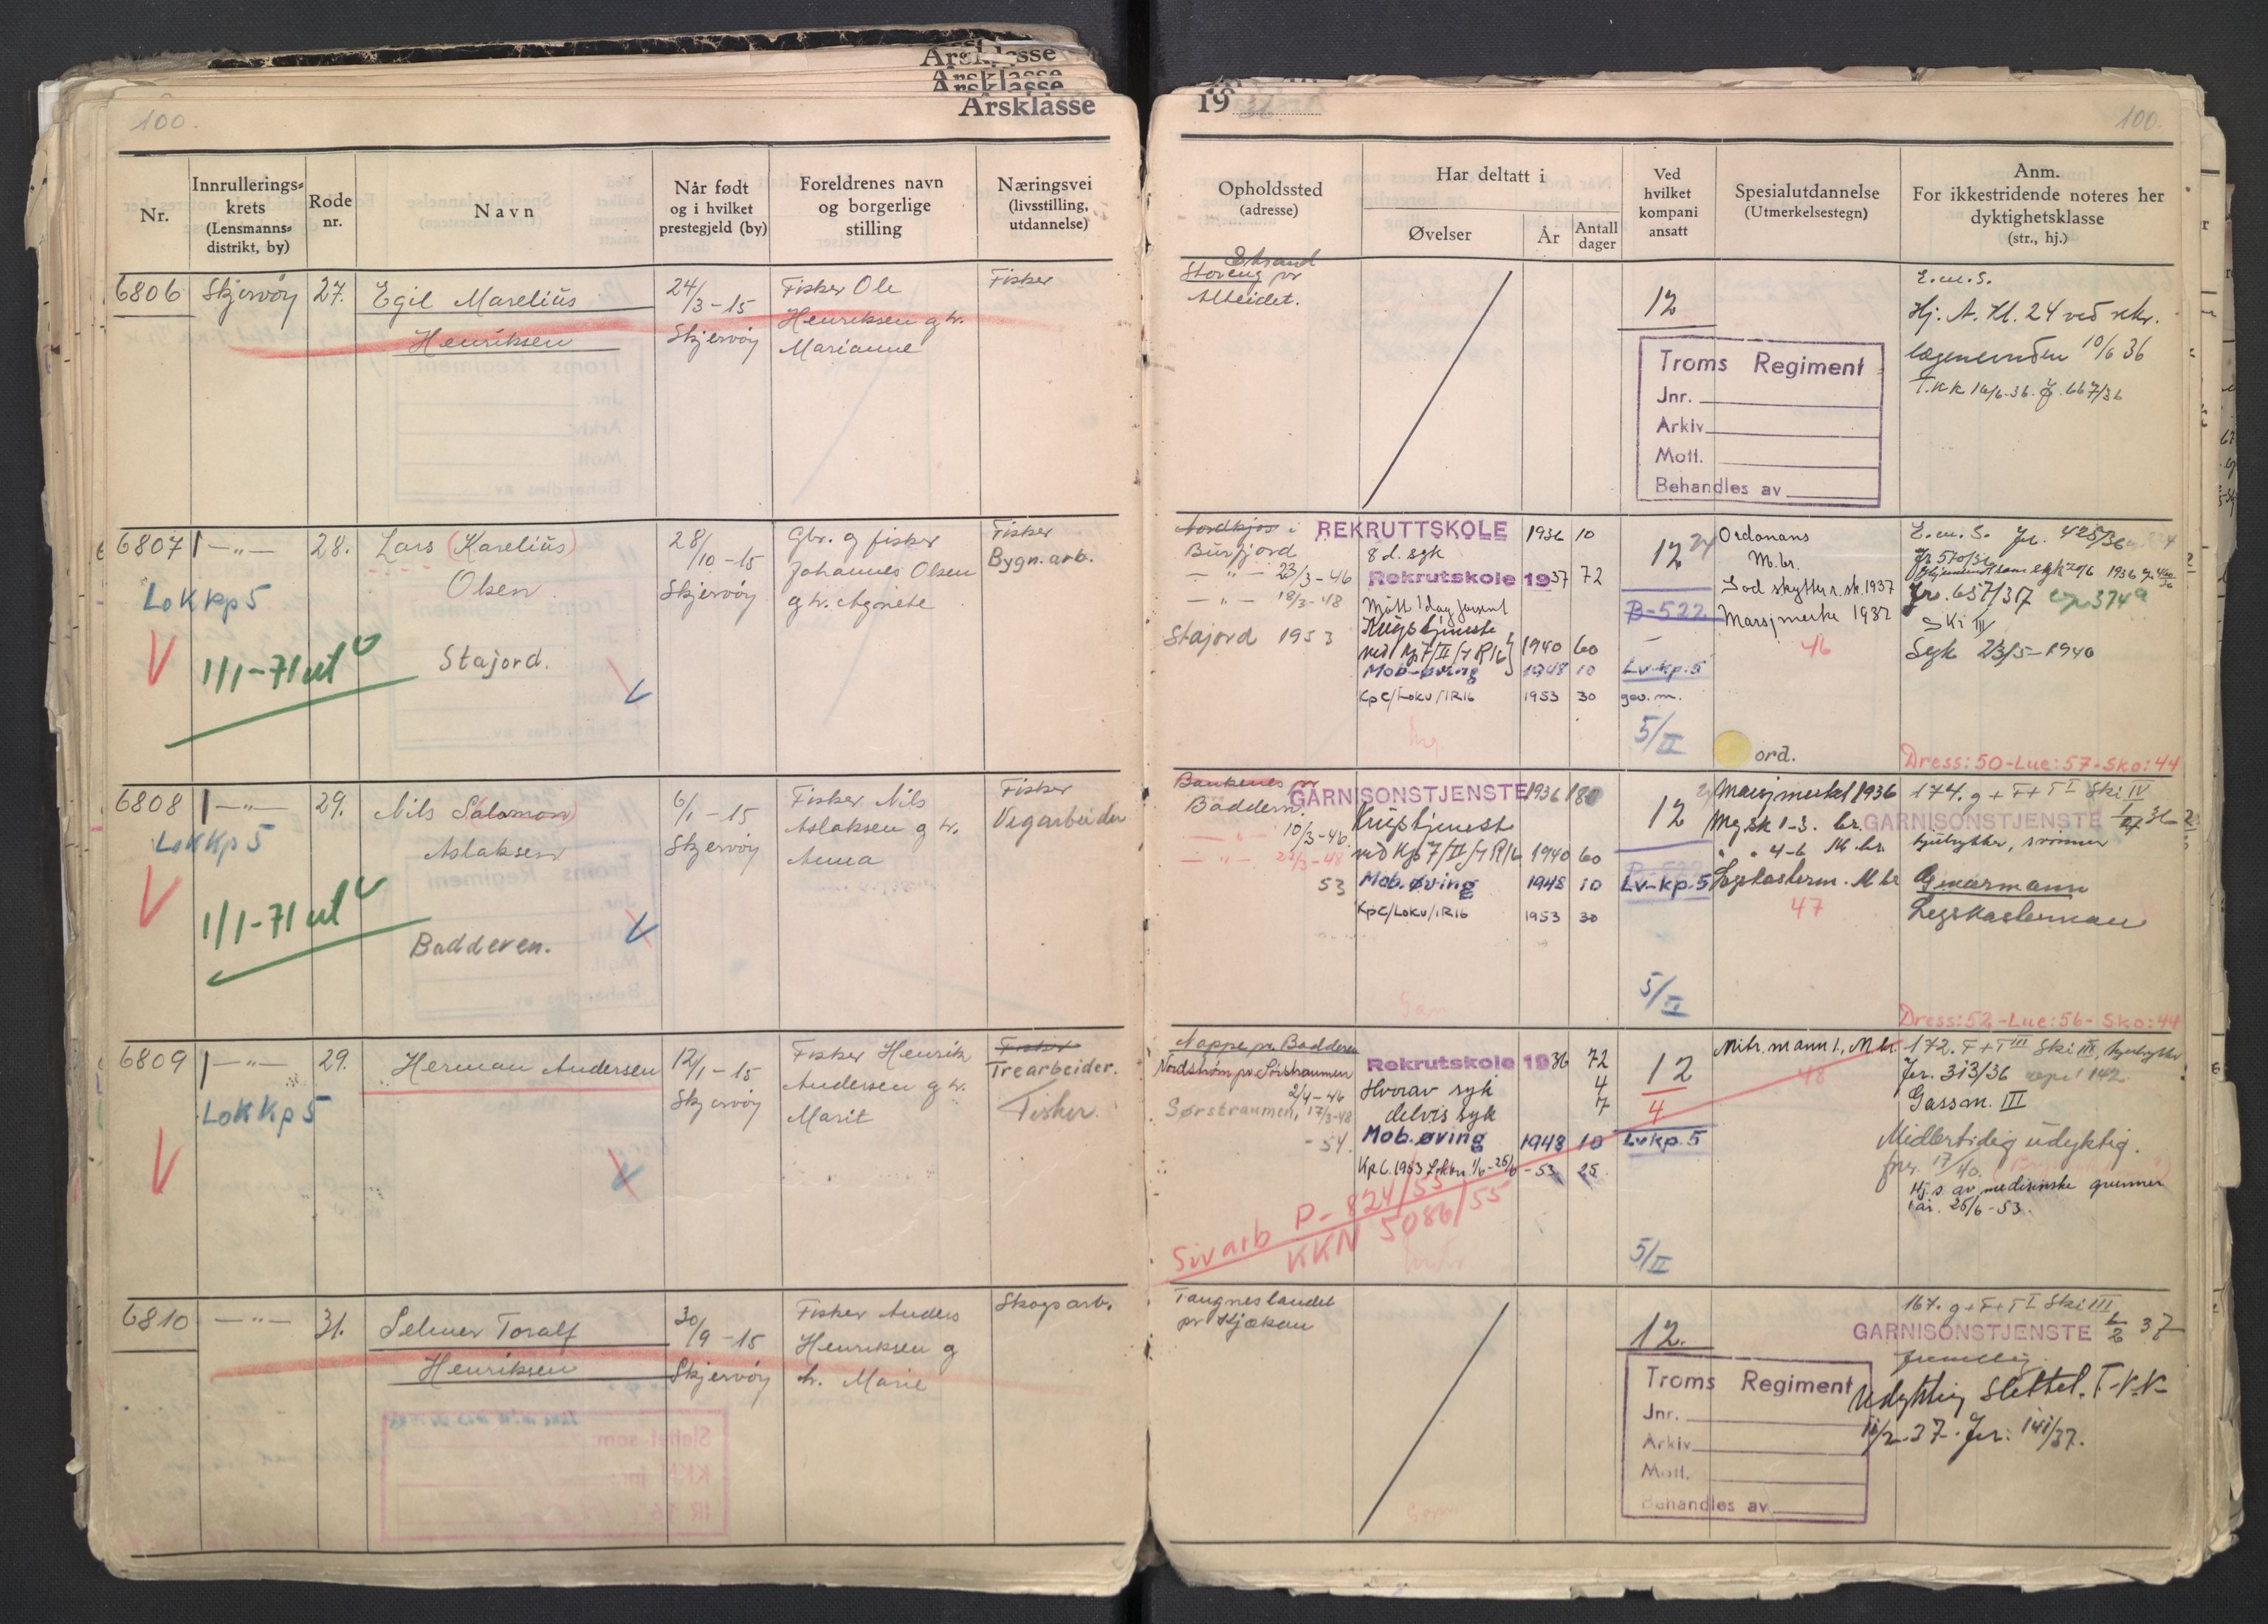 Årsklasse
Årsklasse
Årsklasse
100.
Nr.
Innrullerings-
krets
(Lensmanns-
distrikt, by)
Rode
nr.
Navn
Når født
og i hvilket
prestegjeld (by)
Foreldrenes navn
og borgerlige
stilling
Næringsvei
(livsstilling,
utdannelse)
6806
Skjervøy
27.
Egil Marelius
Henriksen
24/3-15
Skjervøy
Fisker Ole
Henriksen g h.
Marianne
Fisker
6807
— „ —
28.
Lars (Karelius)
Olsen
Stajord.
LoKKp5
1/1-71 ut
28/10-15
Skjervøy
Gbr. g fisker
Johannes Olsen
g h. Agnete
Fisker
Bygn.arb.
6808
— „ —
29.
Nils Salomon
Aslaksen
Badderen.
LoKKp5
1/1-71 ut
6/1-15
Skjervøy
Fisker Nils
Aslaksen g h.
Anna
Fisker
Vegarbeider
6809
— „ —
29.
Herman Andersen
LoKKp5
12/1-15
Skjervøy
Fisker Henrik
Andersen g h.
Marit
Fisker
Trearbeider.
Fisker.
6810
— „ —
31.
Selmer Toralf
Henriksen
30/9-15
Skjervøy
Fisker Anders
Henriksen g
h. Marie
Skogsarb.
19
100.
Opholdssted
(adresse)
Har deltatt i
Øvelser
År
Antall
dager
Ved
hvilket
kompani
ansatt
Spesialutdannelse
(Utmerkelsestegn)
Anm.
For ikkestridende noteres her
dyktighetsklasse
(str., hj.)
Strand
Storeng pr
Alteidet.
12
Troms Regiment
Jnr.
Arkiv
Mott.
Behandles av
E.m.S.
Hj. A. Kl. 24 ved rekr.
lægenevnden 10/6 36
T.KK 16/6-36. J. 667/36
Nordkjos i
Burfjord
— „ — 23/3-46
— „ — 18/3-48
Stajord 1953
REKRUTTSKOLE 1936 10
8 d. syk
Rekrutskole 1937 72
Møtt 1 dag forsent
Krigstjeneste
ved Kp 7/II/IR16 1940 60
Mob-øving 1948 10
KpC/Lokv/IR16 1953 30
12
B-522
Lv-kp.5
gev.m.
5/II
Ordonans
M.br.
God skytter r.sk.1937
Marsjmerke 1937
46
ord.
E.m.S. Jr. 425/36
Jr 570/36
Jr. 657/37
Ski III
Syk 23/5-1940
Dress:50-Lue:57-Sko:44
Baddern.
10/3-46.
53
GARNISONSTJENSTE 1936 180
Krigstjeneste
ved Kp 7/II/IR16 1940 60
Mob.øving 1948 10
KpC/Lokv/IR16 1953 30
12
Lv-kp.5
5/II
Marsjmerket 1936
Mg sk 1-3. br.
„ „ 4-6 M. br.
47
174. g + F + T I Ski IV
GARNISONSTJENSTE
hjulrytter, svømmer
Geværmann
Legskasterman
Dress:52-Lue:56-Sko:44
Nappe pr Badderen
Nordstrøm pr Sørstraumen
2/4-46
Sørstraumen, 17/3-48
-54.
Rekrutskole 1936 72
Hvorav syk 4
delvis syk 7
Mob.øving 1948 10
KpC. 1953 Lokv 1/6-25/6 -53 25
Sivarb P-824/55
KKN 5086/55
12
4
Lvkp.5
5/II
Mitr.mann 1, M br
48
172. F + T III Ski III, hjulrytter
Jr. 313/36
Gassm. III
Midlertidig udyktig.
17/40.
Hj.s. av medisinske grunner
i år. 25/6-53.
Tangneslandet
pr Kjækan
12.
Troms Regiment
Jnr.
Arkiv
Mott.
Behandles av
167. g + F + T I Ski III
GARNISONSTJENSTE 1/2 37
Udyktig Slettet. T.K.K-
11/2-37. Jr. 141/37.